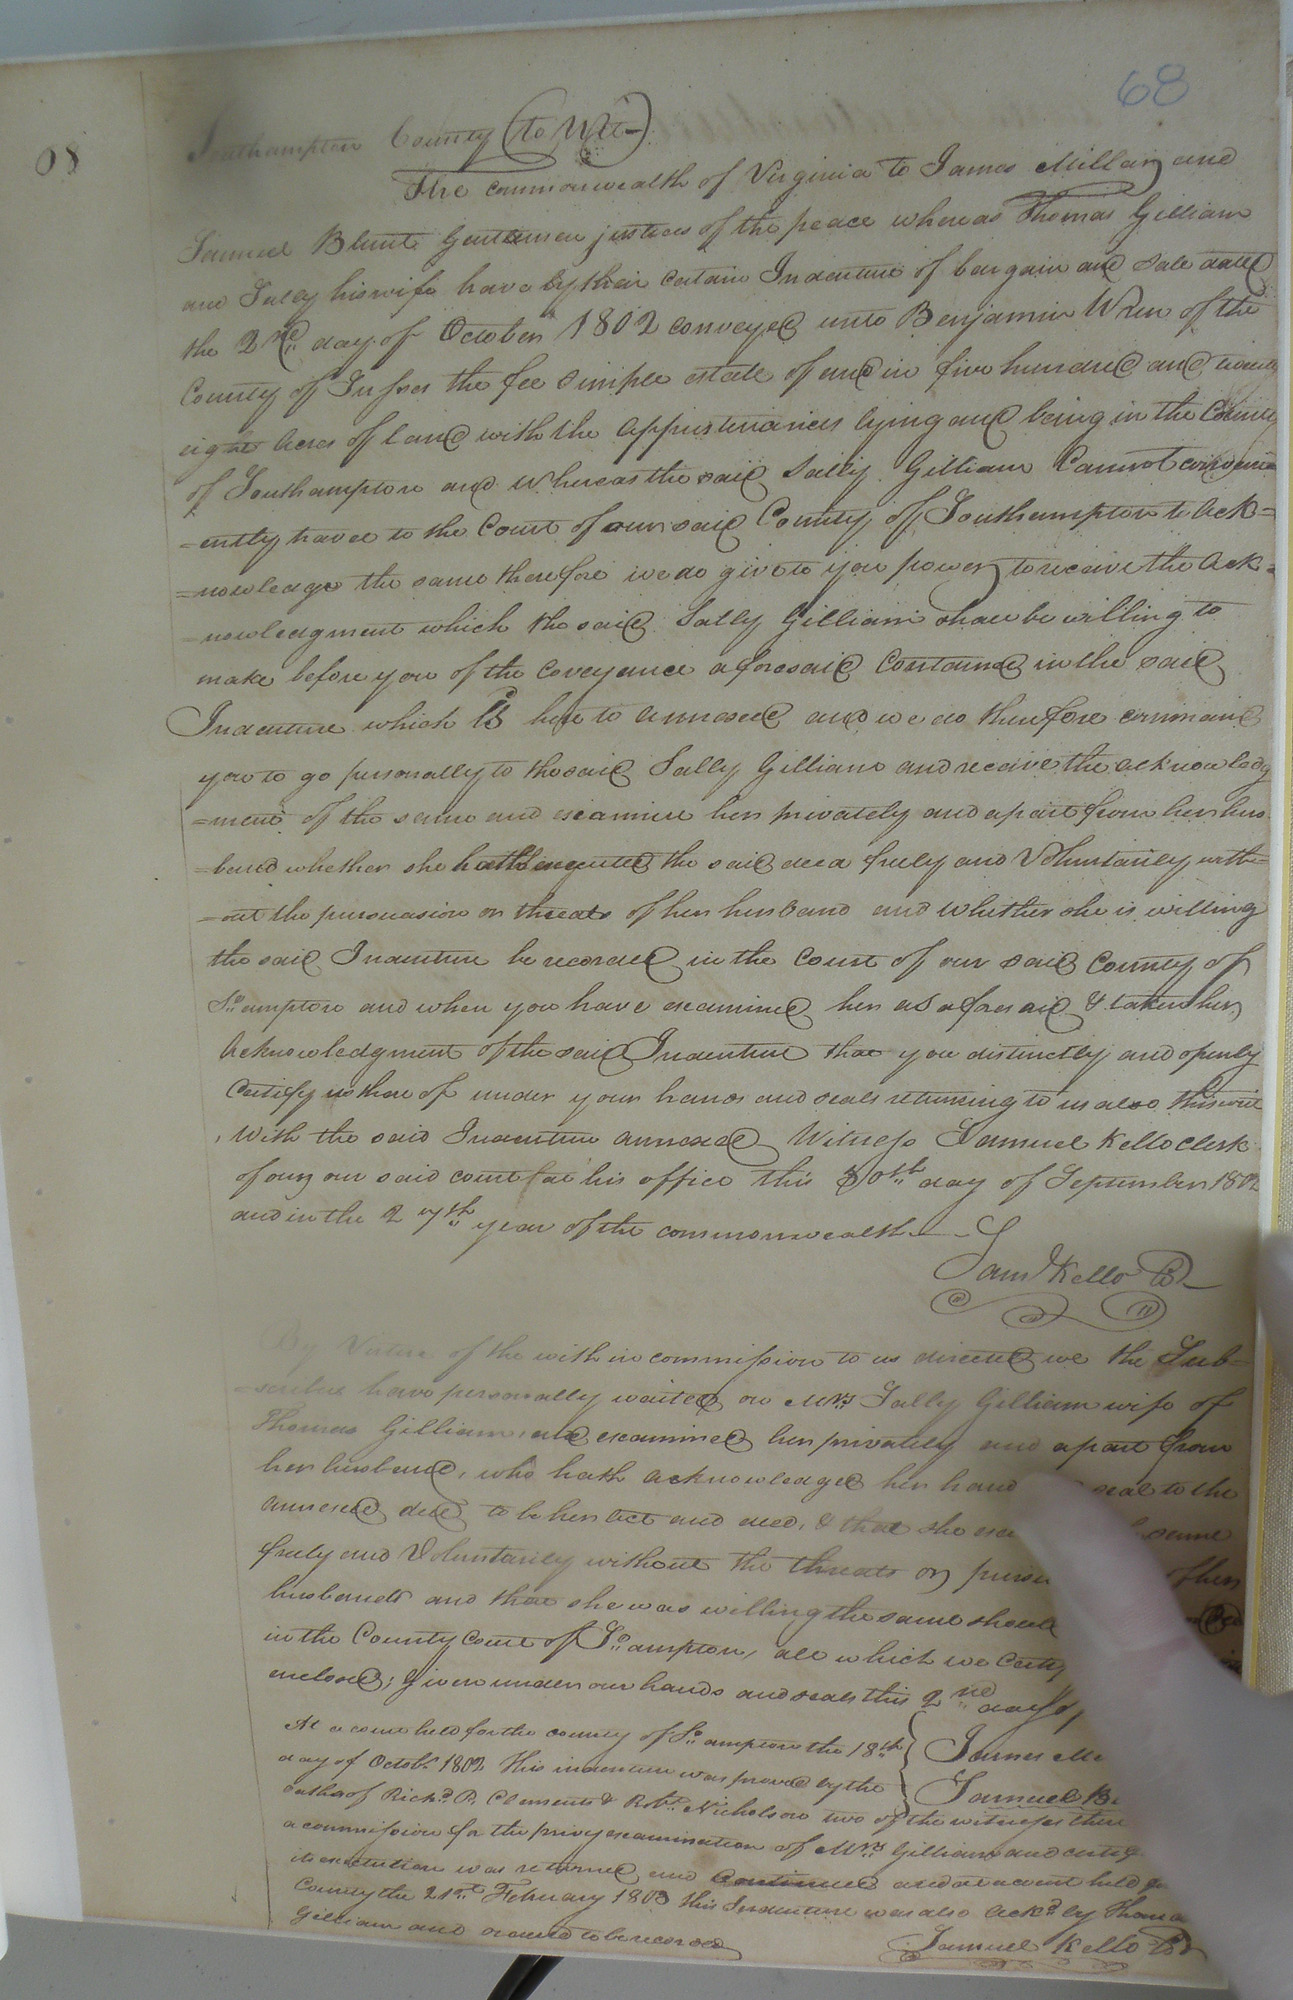 68
80
Southampton County (to Wit)
The commonwealth of Virginia to James Millar and
Samuel Blunt Gentlemen justices of the peace whereas Thomas Gilliam
and Sally his wife have by their certain Indenture of bargain and sale dated
the 2nd day of October 1802 conveyed unto Benjamin Wren of the
County of Sussex the fee simple estate of and in five hundred and
eight Acres of land with the appurtenances lying and being in the County
of Southampton and Whereas the said Sally Gilliam Cannot conveni
=ently travel to the Court of our said County of Southampton to Ack=
=nowledge the same therefore we do give to you power to receive the Ack=
=nowledgment which the said Sally Gilliam shall be willing to
make before you of the coveyance aforesaid Contained in the said
Indenture which is here to annexed and we do therefore command
you to go personally to the said Sally Gilliam and receive the acknowledg
=ment of the same and examine her privately and apart from her hus
=band whether she hath executed the said deed freely and Voluntarily with=
=out the pursuasion or threats of her husband and whether she is willing
the said Indenture be recorded in the Court of our said County of
So:ampton and when you have examined her as aforesaid & taken her
Acknowledgment of the said Indenture that you distinctly and openly
Certify us there of under your hands and seals returning to us also this writ
With the said Indenture annexed Witness Samuel Kello Clerk
of our our said court at his office this 30th day of September 1802
and in the 27th year of the commonwealth
Saml Kello Cl
By Virtue of the with in commission to us directed we the Sub=
=scribers have personally waited on Mrs Sally Gilliam wife of
Thomas Gilliam, and examined her privately and apart from
her husband, who hath acknowledged her hand seal to the
annexed deed to be her act and deed, & that she same
freely and Voluntarily without the threats or of her
husband and that she was willing the same should
in the County Court of So:ampton, all which we Certify
enclosed; Given under our hands and seals this 2nd day of
At a court held for the county of So:ampton the 18th
day of Octobr 1802 This indenture was proved by the
oaths of Richd. P. Clements & Robt. Nicholson two of the witnesses there
a commission for the privy examination of Mrs Gilliam and
its execution was returned and Continued and at a court held
County the 21st February 1803 this Indenture was also Ackd by Thomas
Gilliam and ordered to be recorded
James
Samuel
Samuel Kello